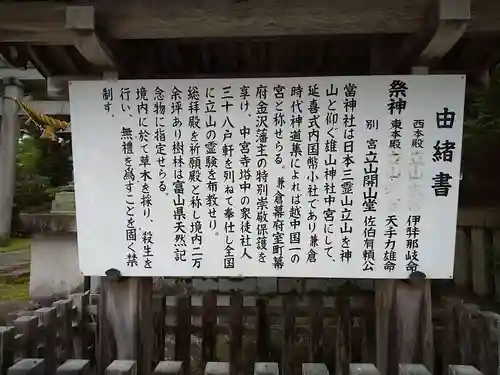 由緒書
祭神
西本殿 立山大宮 伊弉那岐命
東本殿 立山 天手力雄命
別宮 立山開山堂 佐伯有頼公
當神社は日本三霊山立山を神
山と仰ぐ雄山神社中宮にして、
延喜式内国幣小社であり兼倉
時代神道集によれば越中国一の
宮と称せらる。兼倉幕府室町幕
府金沢藩主の特別崇敬保護を
享け、中宮寺塔中の衆徒社人
三十八戸軒を列ねて奉仕し全国
に立山の霊験を布教せり。
総拝殿を祈願殿と称し境内二万
余坪あり樹林は富山県天然記
念物に指定せらる。
境内に於て草木を採り、殺生を
行い、無禮を為すことを固く禁
制す。